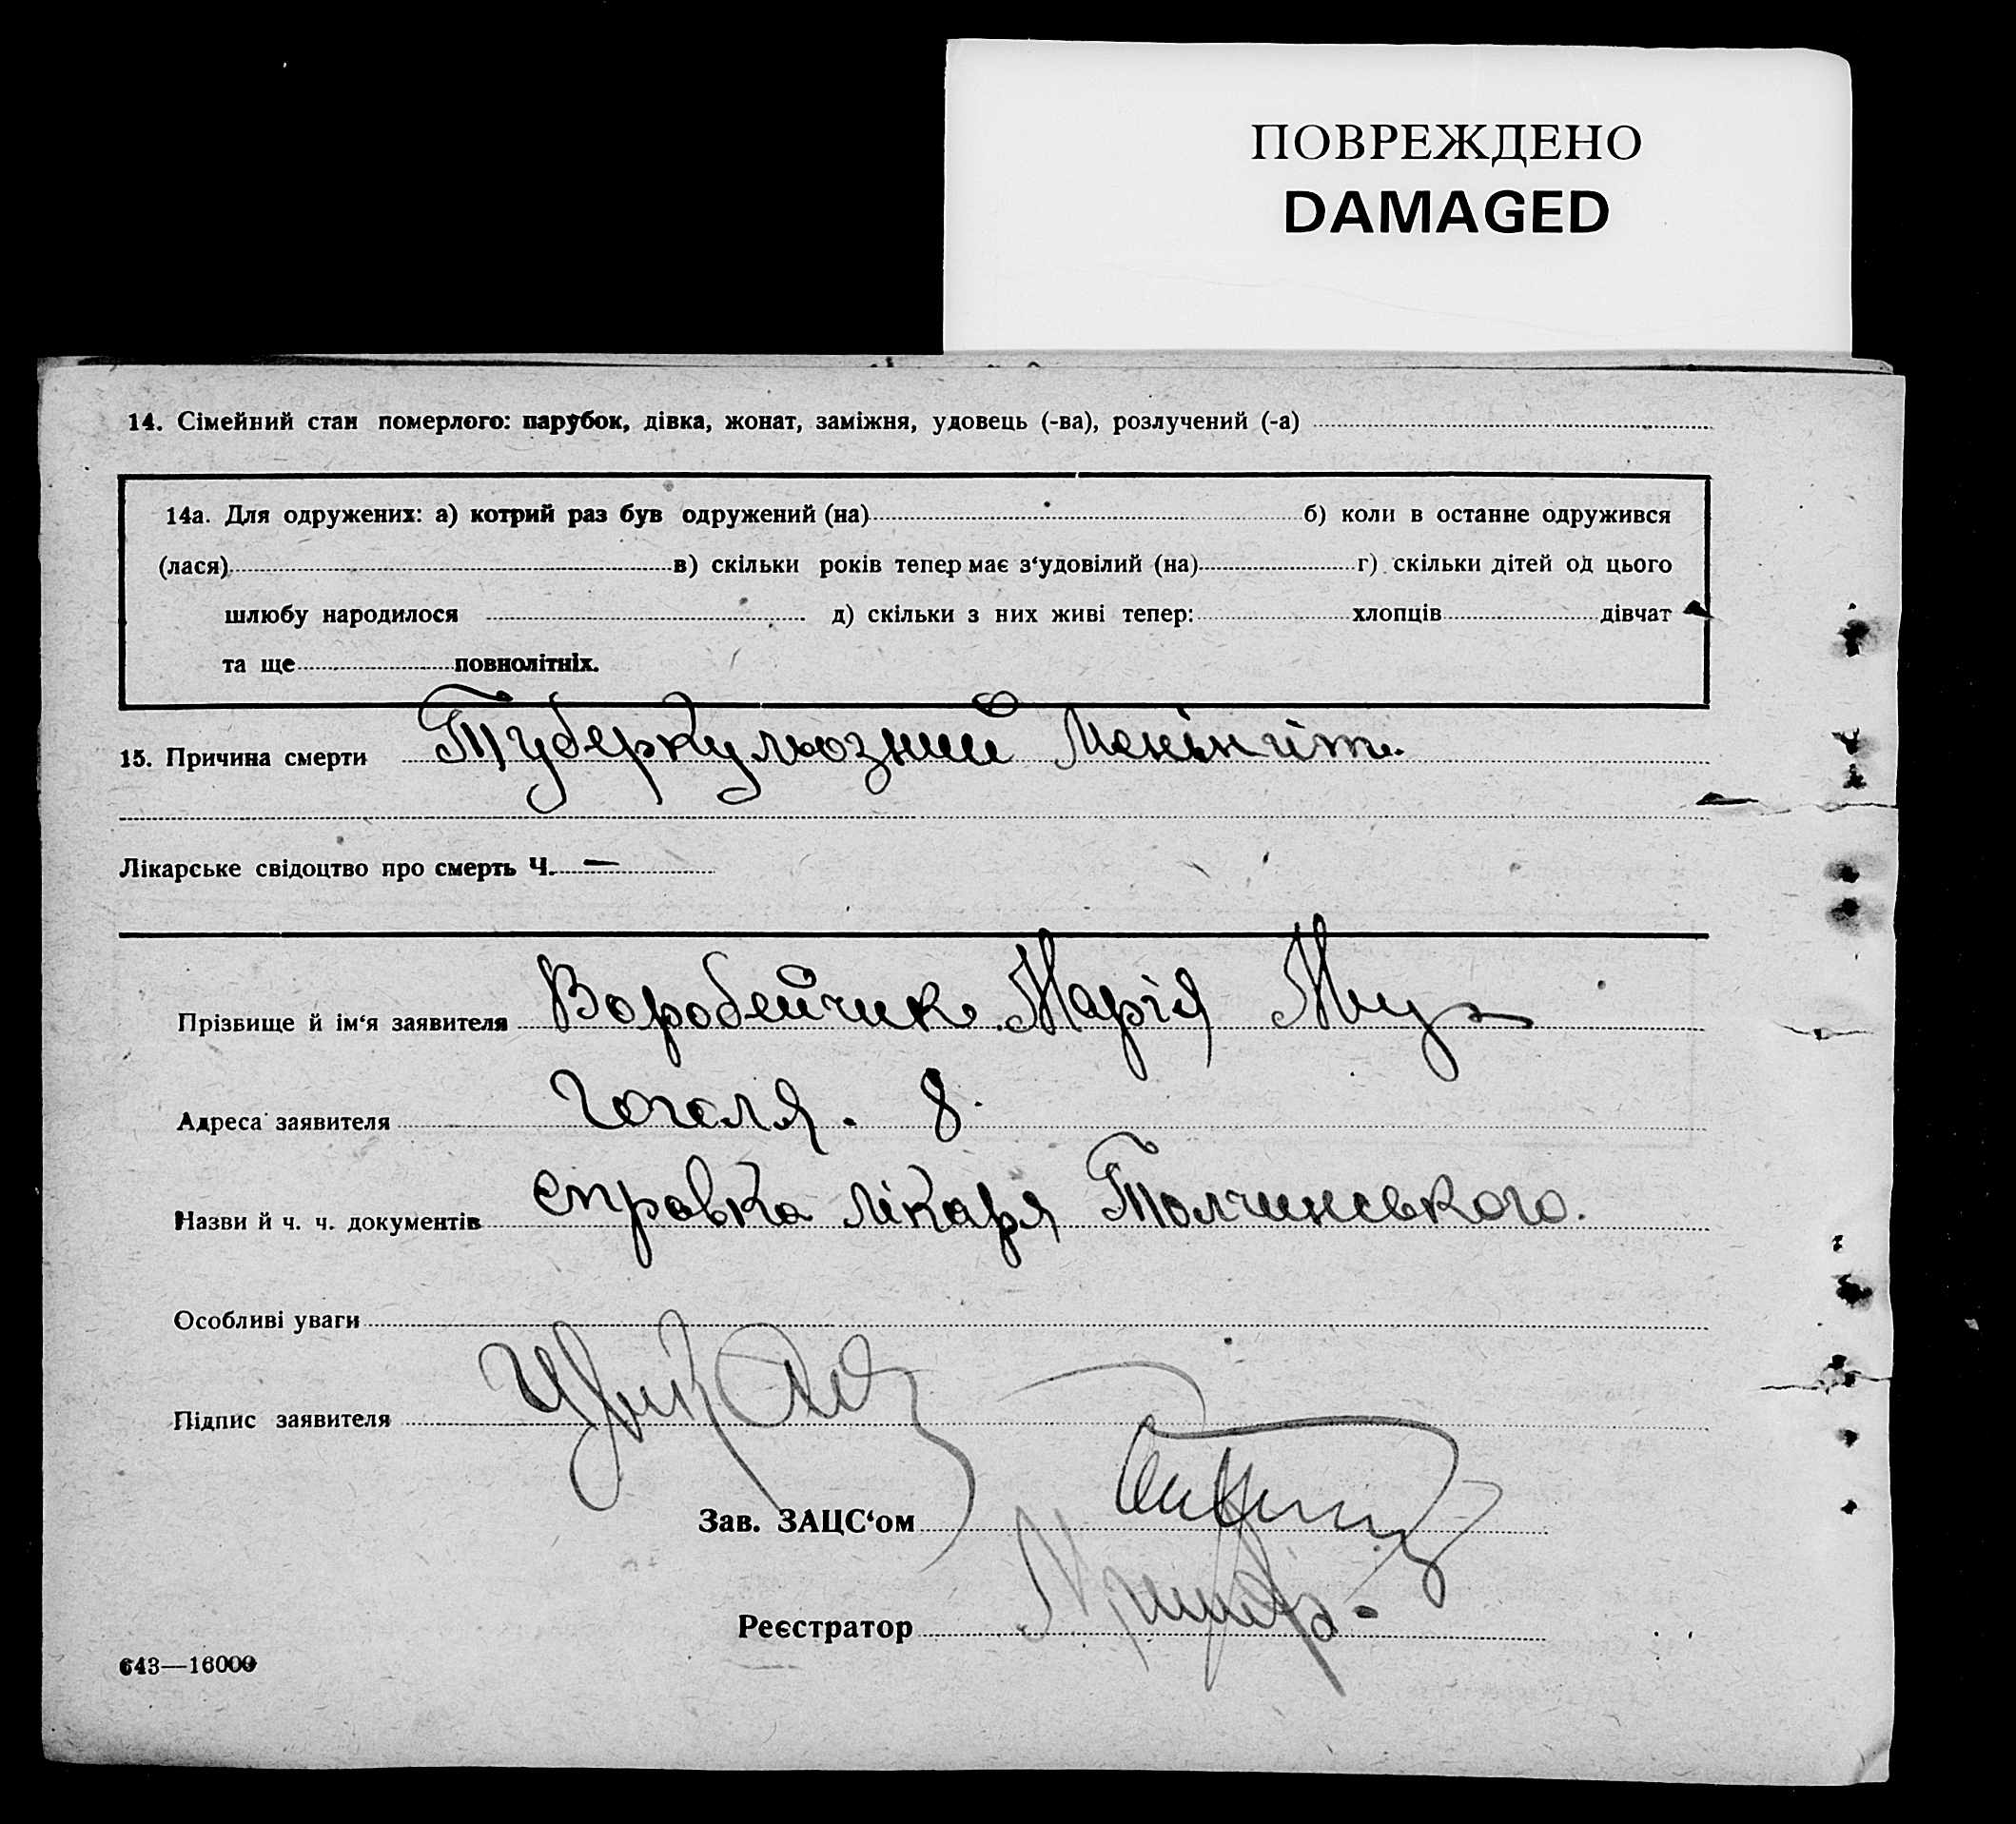 ПОВРЕЖДЕНО
DAMAGED
14. Сімейний стан померлого: парубок, дівка, жонат, заміжня, удовець (-ва), розлучений (-а)
14а. Для одружених: а) котрий раз був одружений (на) б) коли в останнє одружився
(лася) в) скільки років тепер має з‘удовілий (на) г) скільки дітей од цього
шлюбу народилося д) скільки з них живі тепер: хлопців дівчат
та ще повнолітніх.
15. Причина смерти Туберкульозний Менінгіт.
Лікарське свідоцтво про смерть Ч. —
Прізвище й ім‘я заявителя Воробейчик Марія
Адреса заявителя Гоголя. 8.
Назви й ч. ч. документів справка лікаря Толчинського.
Особливі уваги
Підпис заявителя
Зав. ЗАЦС‘ом
Реєстратор
643—16000